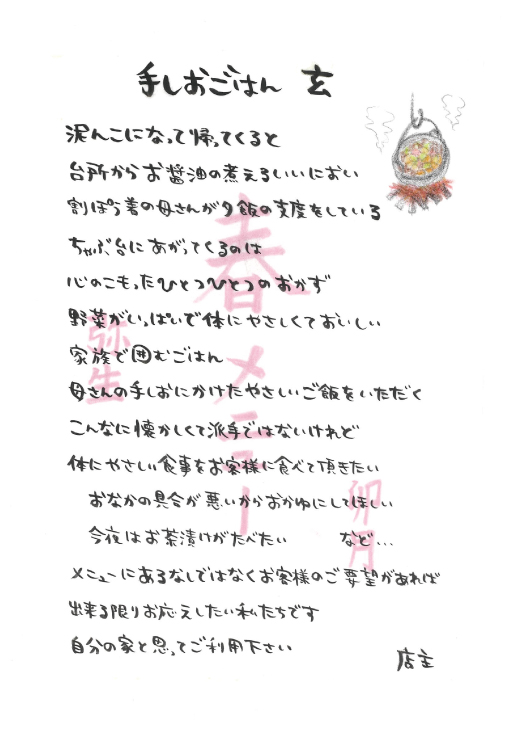 手しおごはん 玄
泥んこになって帰ってくると
台所からお醤油の煮えるいいにおい
割ぽう着の母さんが夕飯の支度をしている
ちゃぶ台にあがってくるのは
心のこもったひとつひとつのおかず
野菜がいっぱいで体にやさしくておいしい
家族で囲むごはん
母さんの手しおにかけたやさしいご飯をいただく
こんなに懐かしくて派手ではないけれど
体にやさしい食事をお客様に食べて頂きたい
おなかの具合が悪いからおかゆにしてほしい
今夜はお茶漬けがたべたい など...
メニューにあるなしではなくお客様のご要望があれば
出来る限りお応えしたい私たちです
自分の家と思ってご利用下さい
店主
春メニュー
弥生
卯月